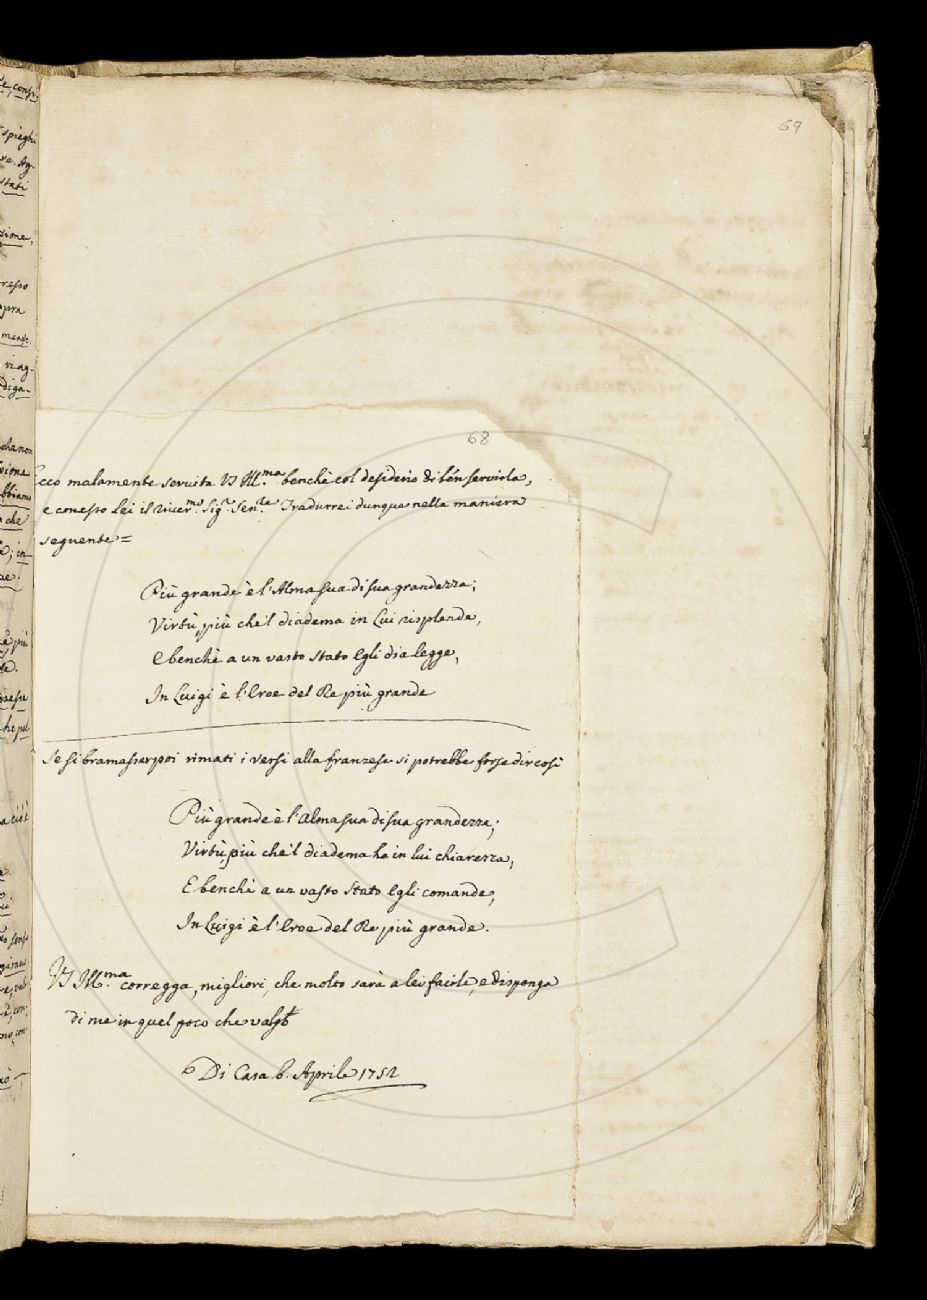 69
68
Ecco malamente servita VS Ill.ma benchè col desiderio di ben servirla,
e con esso Lei il river.mo Sig.r Sen.re Tradurrei dunque nella maniera
seguente =
Più grande è l'Alma sua di sua grandezza;
Virtù, più che 'l diadema in Lui risplende,
E benchè a un vasto stato Egli dia legge,
In Luigi è l'Eroe del Re più grande
Se si bramasser poi rimati i versi alla franzese si potrebbe forse dir così
Più grande è l'alma sua di sua grandezza;
Virtù, più che 'l diadema ha in lui chiarezza,
E benchè a un vasto stato Egli comande,
In Luigi è l'Eroe del Re più grande.
VS Ill.ma corregga, migliori, che molto sarà a lei facile, e disponga
di me in quel poco che
Di Casa 6. Aprile 1752